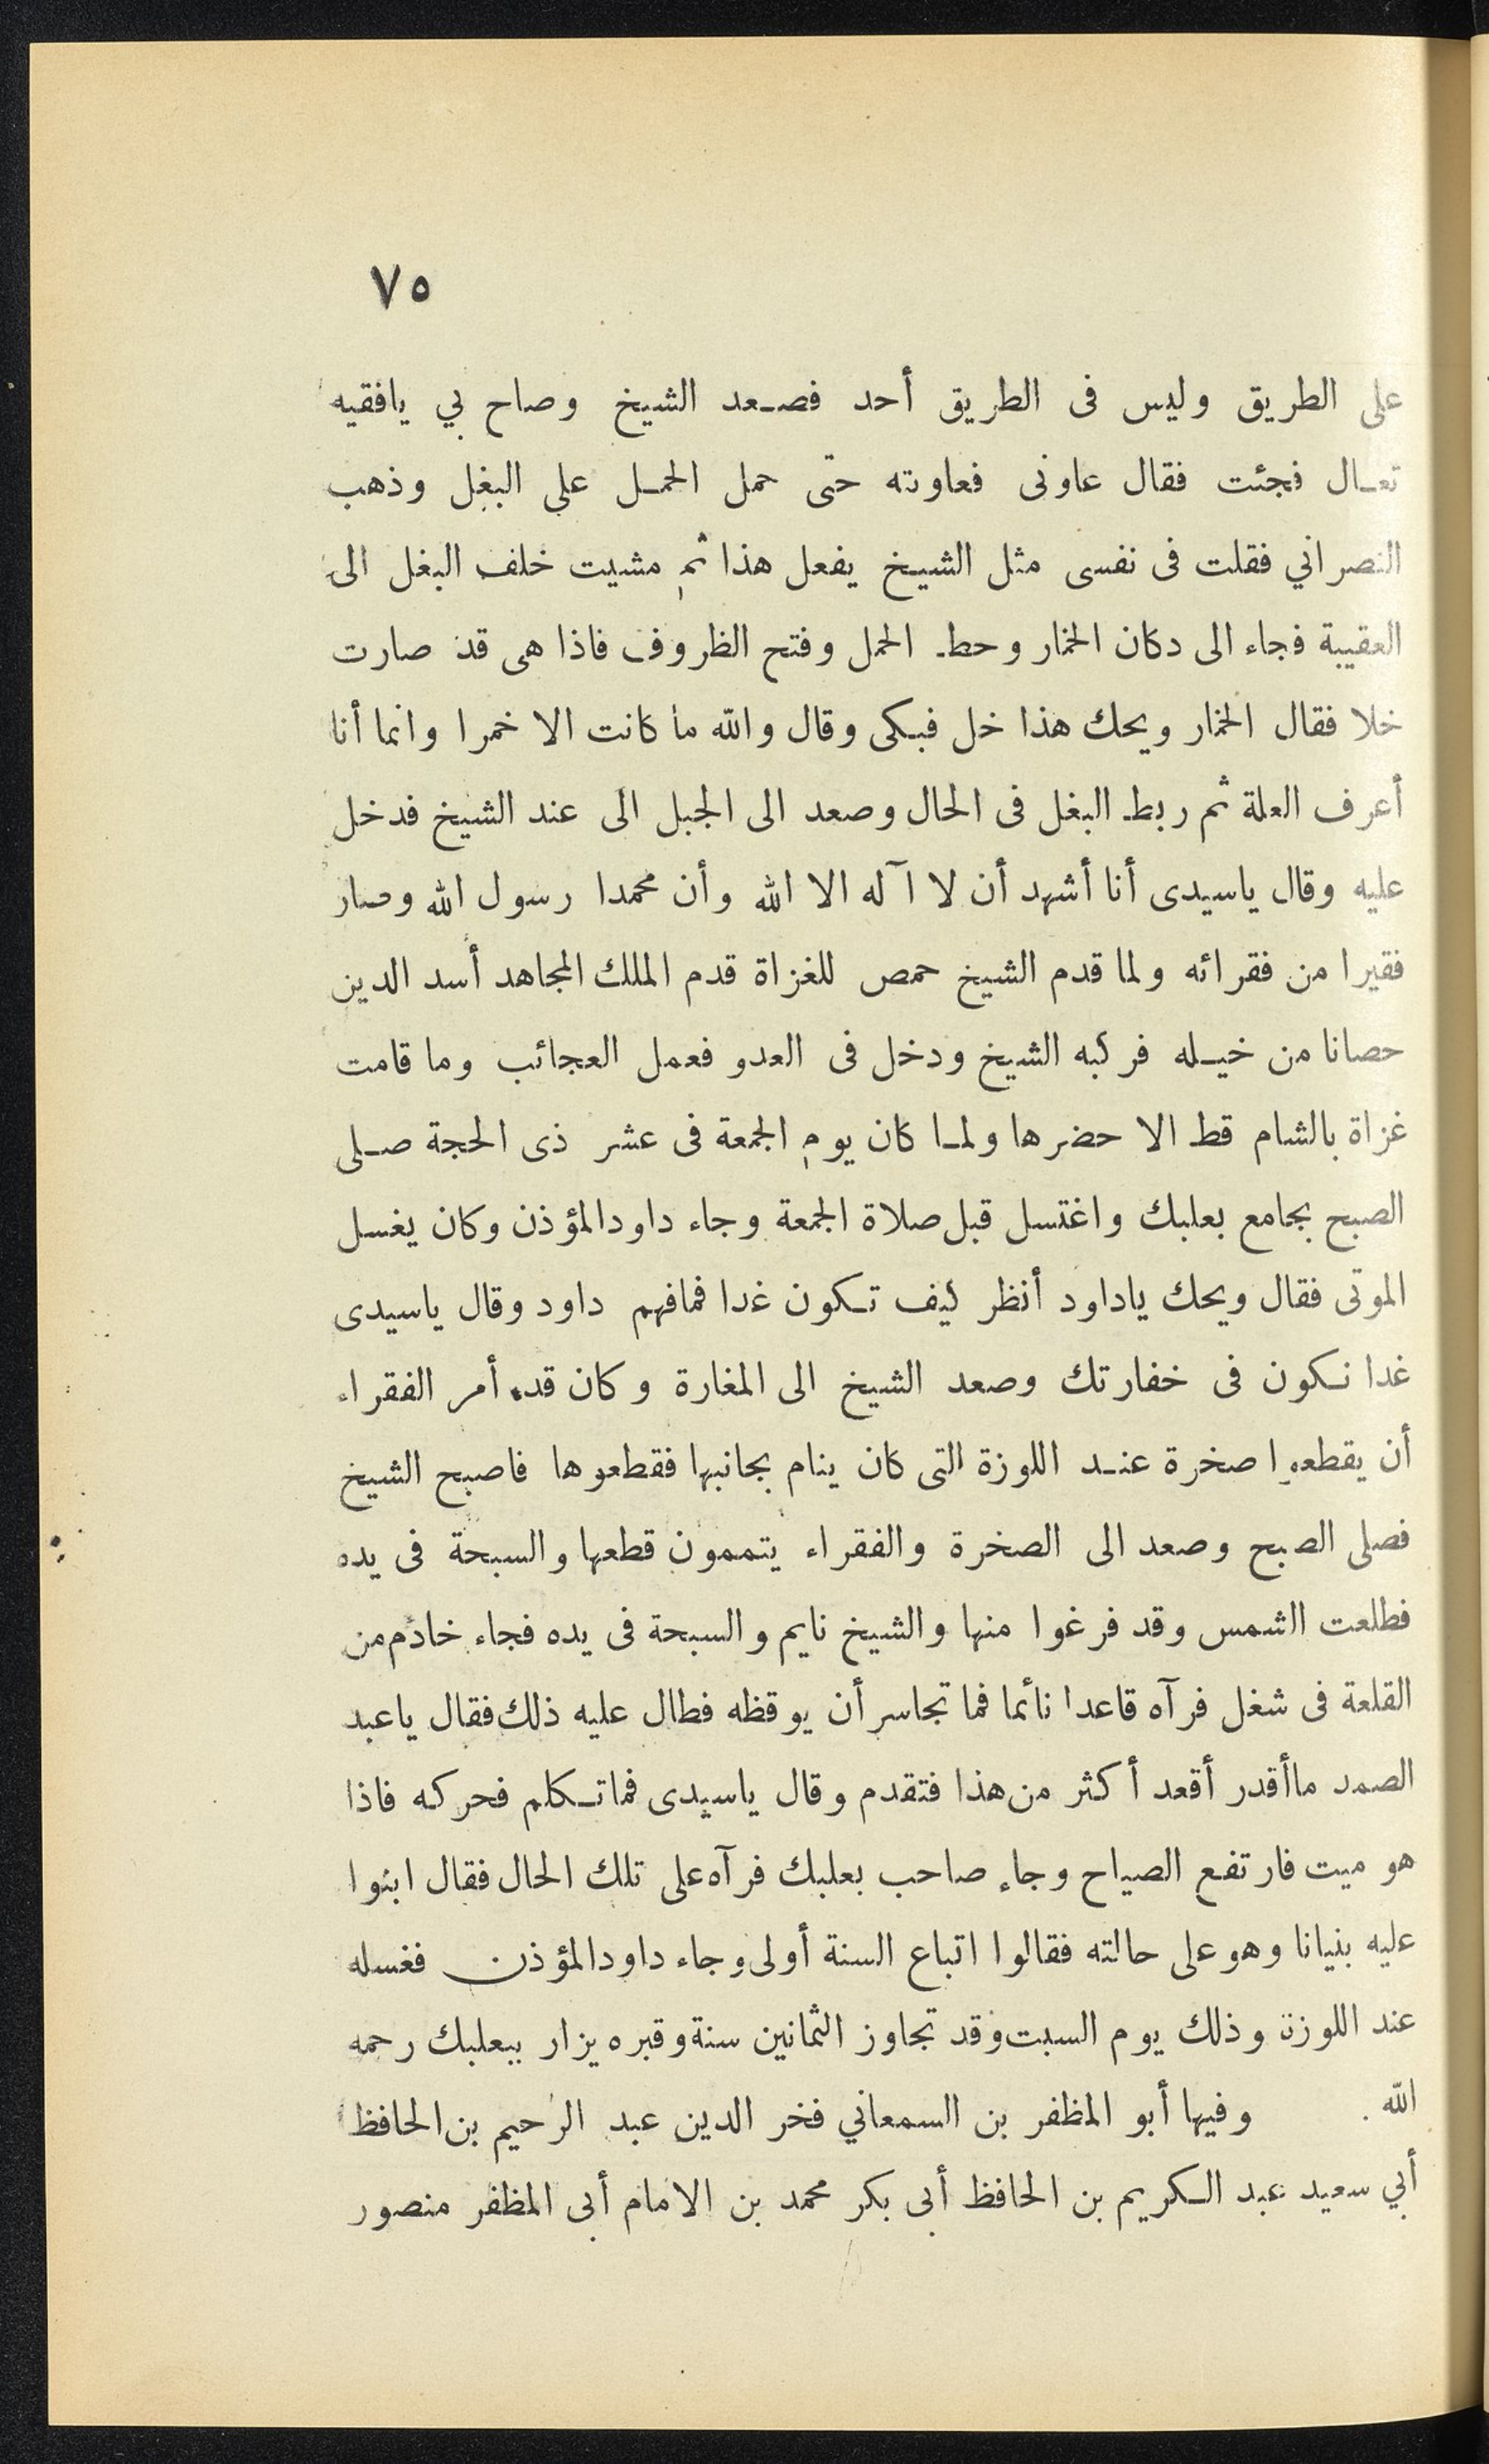 ٧٥
على الطريق وليس فى الطريق أحد فصعد الشيخ وصاح بي يافقيه
تعال فجئت فقال عاونى فعاونته حتى حمل الحمل على البغل وذهب
النصراني فقلت فى نفسى مثل الشيخ يفعل هذا ثم مشيت خلف البغل الى
العقيبة فجاء الى دكان الخمار وحط الحمل وفتح الظروف فاذا هى قد صارت
خلا فقال الخمار ويحك هذا خل فبكى وقال والله ما كانت الا خمرا وانما أنا
أعرف العلة ثم ربط البغل فى الحال وصعد الى الجبل الى عند الشيخ فدخل
عليه وقال ياسيدى أنا أشهد أن لا آله الا الله وأن محمدا رسول الله وصار
فقيرا من فقرائه ولما قدم الشيخ حمص للغزاة قدم الملك المجاهد أسد الدين
حصانا من خيله فركبه الشيخ ودخل فى العدو فعمل العجائب وما قامت
غزاة بالشام قط الا حضرها ولما كان يوم الجمعة فى عشر ذى الحجة صلى
الصبح بجامع بعلبك واغتسل قبل صلاة الجمعة وجاء داود المؤذن وكان يغسل
الموتى فقال ويحك ياداود أنظر كيف تكون غدا فمافهم داود وقال ياسيدى
غدا نكون فى خفارتك وصعد الشيخ الى المغارة وكان قد أمر الفقراء
أن يقطعوا صخرة عند اللوزة التى كان ينام بجانبها فقطعوها فاصبح الشيخ
فصلى الصبح وصعد الى الصخرة والفقراء يتممون قطعها والسبحة فى يده
فطلعت الشمس وقد فرغوا منها والشيخ نايم والسبحة فى يده فجاء خادم من
القلعة فى شغل فرآه قاعدا نائما فما تجاسر أن يوقظه فطال عليه ذلك فقال ياعبد
الصمد ماأقدر أقعد أكثر من هذا فتقدم وقال ياسيدى فماتكلم فحركه فاذا
هو ميت فارتفع الصياح وجاء صاحب بعلبك فرآه على تلك الحال فقال ابنوا
عليه بنيانا وهو على حالته فقالوا اتباع السنة أولى وجاء داود المؤذن فغسله
عند اللوزة وذلك يوم السبت وقد تجاوز الثمانين سنة وقبره يزار ببعلبك رحمه
الله . وفيها أبو المظفر بن السمعاني فخر الدين عبد الرحيم بن الحافظ
أبي سعيد عبد الكريم بن الحافظ أبى بكر محمد بن الامام أبى المظفر منصور